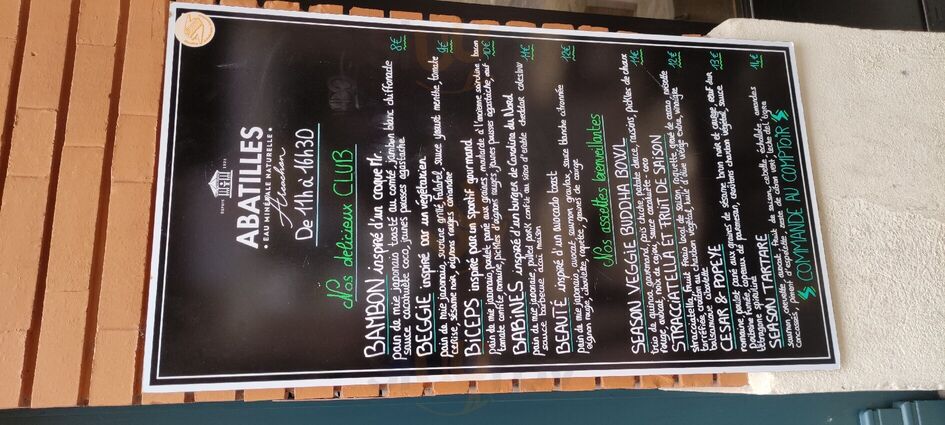 DEPUIS 1925
ABATILLES
EAU MINÉRALE NATURELLE
Arcachon
De 11h à 16h30
Nos délicieux CLUB
BAMBON inspiré d'un croque Mr. 8€
pain de mie japonais toasté au comté, jambon blanc chiffonade
sauce cacahuète coco, jeunes pousses agastache
BEGGIE inspiré par un végétarien 9€
pain de mie japonais, sucrine grillé, falafel, sauce yaourt menthe, tomate
cerise, sésame noir, oignons rouges coriandre
BICEPS inspiré par un sportif gourmand 10€
pain de mie japonais, poulet pané aux graines, moutarde à l'ancienne
tomate confite romaine, pickles d'oignons rouges, jeunes pousses agastache, œuf
BABINES inspiré d'un burger de Caroline du Nord 11€
pain de mie japonais, pulled pork confit au sirop d'érable cheddar coleslaw
sauce barbecue açaï maison
BEAUTÉ inspiré d'un avocado toast 12€
pain de mie japonais, avocat saumon gravlax, sauce blanche citronnée
oignon rouge, ciboulette, roquette, graines de courge
Nos assiettes bienveillantes
SEASON VEGGIE BUDDHA BOWL 11€
trio de quinoa gourmand, pois chiche, patate douce, raisins, pickles de choux
rouge, avocat, noix de cajou, sauce cacahuète-coco
STRACCIATELLA ET FRUIT DE SAISON 12€
stracciatella, fruit frais local de saison roquette, éclat de cacao noisette
torréfiées, huile d'olive vierge extra, vinaigre
balsamique ciboulette
CESAR & POPEYE 13€
romaine, poulet pané aux graines de sésame brun noir et orange œuf dur
poitrine fumée, copeaux de parmesan, croûtons, sauce
SEASON TARTARE 14€
saumon avocat Fruit de saison, ciboulette, amandes
concassées, piment d'espelette
COMMANDE AU COMPTOIR